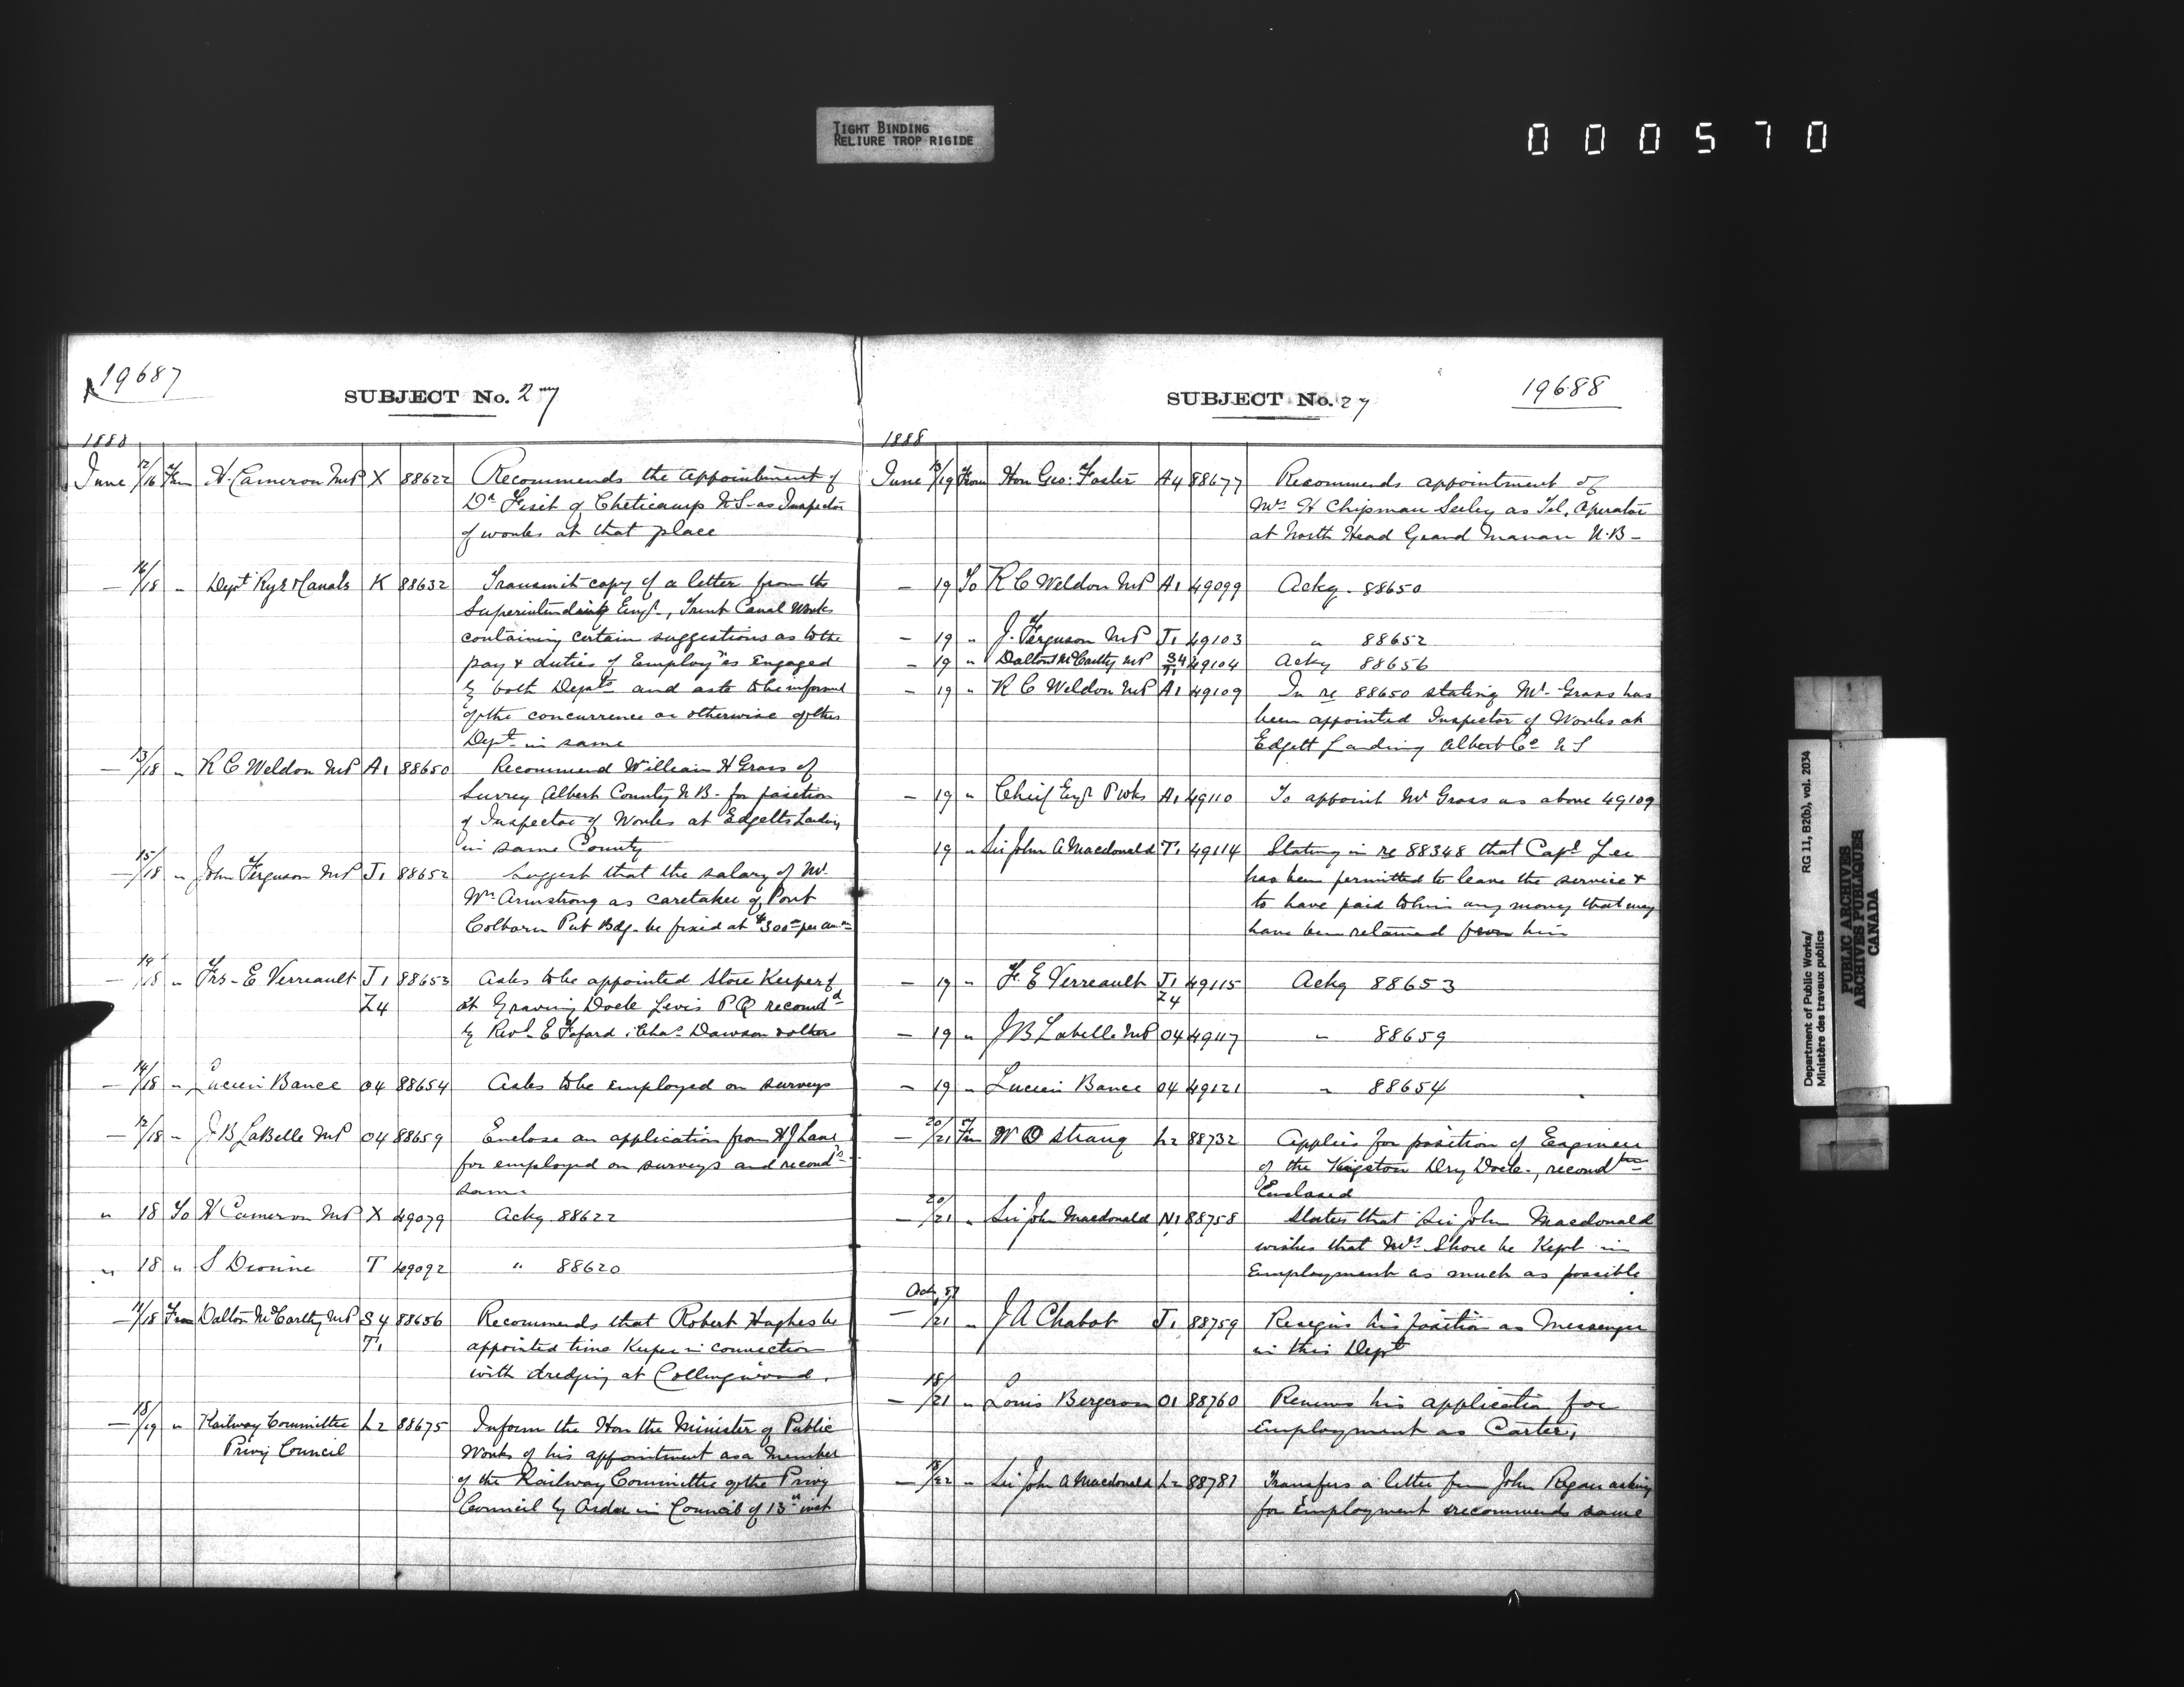 TIGHT BINDING
RELIURE TROP RIGIDE
000570
19687
SUBJECT No. 27
1888
June 12/16 From H. Cameron MP X 88622 Recommends the appointment of
Dr Fiset of Cheticamp N.S. as Inspector
of works at that place
— 16/18 " Dept Rys & Canals K 88632 Transmit copy of a letter from the
Superintending Engr., Trent Canal Works
containing certain suggestions as to the
pay & duties of Employés engaged
by both Depts and asks to be informed
of the concurrence or otherwise of this
Dept in same
— 13/18 " R C Weldon MP A1 88650 Recommend William H Gross of
Surrey Albert County N.B. for position
of Inspector of Works at Edgetts Landing
in same County
— 15/18 " John Ferguson MP J1 88652 Suggest that the salary of Mr
Wm Armstrong as caretaker of Port
Colborn Pub Bdg. be fixed at $300 per ann
— /18 " Frs. E Verreault J1 88653 Asks to be appointed Store Keeper
Z4 at Graving Dock Levis P Q recomd
by Revd. E Fafard, Chas. Dawson & others
— 14/18 " Lucien Bance O4 88654 Asks to be employed on surveys
— 12/18 " J B LaBelle MP O4 88659 Enclose an application from H J Lane
for employed on surveys and recomds
same
" 18 To H Cameron MP X 49079 Ackg 88622
" 18 " S Dionne T 49092 " 88620
— /18 From Dalton McCarthy MP S4 88656 Recommends that Robert Hughes be
T1 appointed time Keeper in connection
with dredging at Collingwood.
— 18/19 " Railway Committee L2 88675 Inform the Hon the Minister of Public
Privy Council Works of his appointment as a Member
of the Railway Committee of the Privy
Council by Order in Council of 13th inst
SUBJECT No. 27
19688
1888
June 13/19 From Hon Geo: Foster A4 88677 Recommends appointment of
Mr H Chipman Seeley as Tel, Operator
at North Head Grand Manan N.B —
— 19 To R C Weldon MP A1 49099 Ackg. 88650
— 19 " J. Ferguson MP J1 49103 " 88652
— 19 " Dalton McCarthy MP S4 T1 49104 Ackg 88656
— 19 " R C Weldon MP A1 49109 In re 88650 stating Mr. Gross has
been appointed Inspector of Works at
Edgett Landing Albert Co N S
— 19 " Chief Engr P Wks A1 49110 To appoint Mr Gross as above 49109
19 " Sir John A Macdonald T1 49114 Stating in re 88348 that Capt Lee
has been permitted to leave the service &
to have paid to him any money that may
have been retained from him
— 19 " F. E Verreault J1 49115 Ackg 88653
Z4
— 19 " J B Labelle MP O4 49117 " 88659
— 19 " Lucien Bance O4 49121 " 88654
— 20/21 From W O Strang L2 88732 Applies for position of Engineer
of the Kingston Dry Dock., recomdtns
Enclosed
— 20/21 " Sir John Macdonald N1 88758 States that Sir John Macdonald
wishes that Mr Shore be Kept in
Employment as much as possible
— /21 " J A Chabot J1 88759 Resigns his position as Messenger
in this Dept
— 18/21 " Louis Bergeron O1 88760 Renews his application for
Employment as Carter,
— 18/22 " Sir John A Macdonald L2 88781 Transfers a letter from John Regan asking
for Employment & recommends same
Department of Public Works/
Ministère des travaux publics
RG 11, B2(b), vol. 2034
PUBLIC ARCHIVES
ARCHIVES PUBLIQUES
CANADA